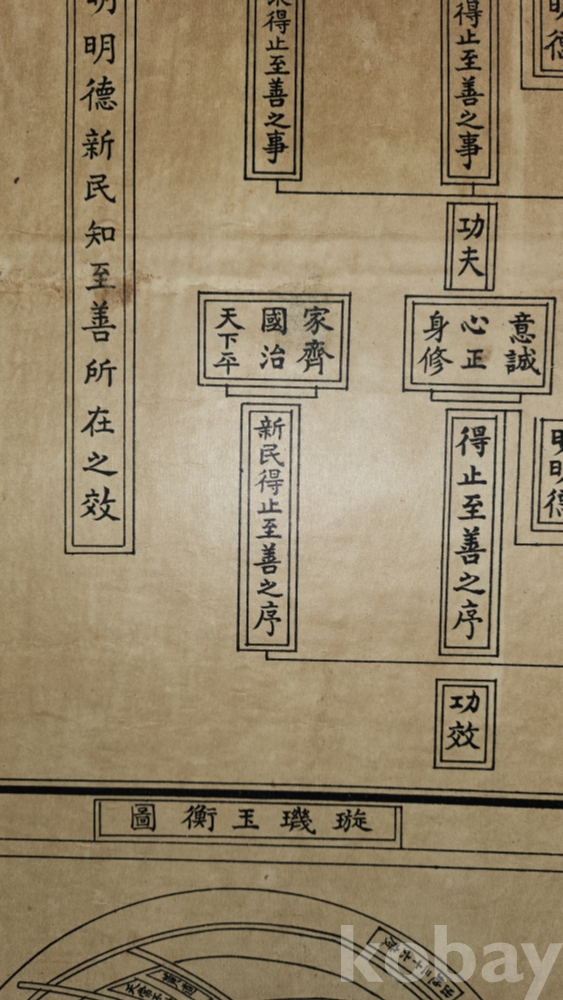 得止至善之事
功夫
意誠
心正
身修
得止至善之序
功效
得止至善之事
家齊
國治
天下平
新民得止至善之序
明德新民知至善所在之效
璇璣玉衡圖
kobay